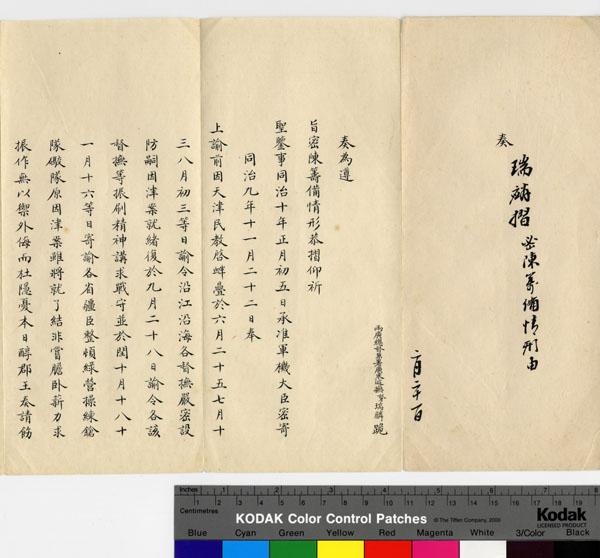 奏
瑞麟摺 密陳籌備情形由
二月二十一日
兩廣總督兼署廣東巡撫 瑞麟 跪
奏為遵
旨密陳籌備情形恭摺仰祈
聖鑒事同治十年正月初五日承准軍機大臣密寄
同治九年十一月二十二日奉
上諭前因天津民教啓衅疊於六月二十五七月十
三八月初三等日諭令沿江沿海各督撫嚴密設
防嗣因津案就緒復於九月二十八日諭令各該
督撫等振刷精神講求戰守並於閏十月十八十
一月十六等日寄諭各省疆臣整頓綠營操練鎗
隊礮隊原因津案雖將就了結非嘗膽卧薪力求
振作無以禦外侮而杜隱憂本日醇郡王奏請飭
Inches
Centimetres
KODAK Color Control Patches
© The Tiffen Company, 2000
Kodak
LICENSED PRODUCT
Blue Cyan Green Yellow Red Magenta White 3/Color Black